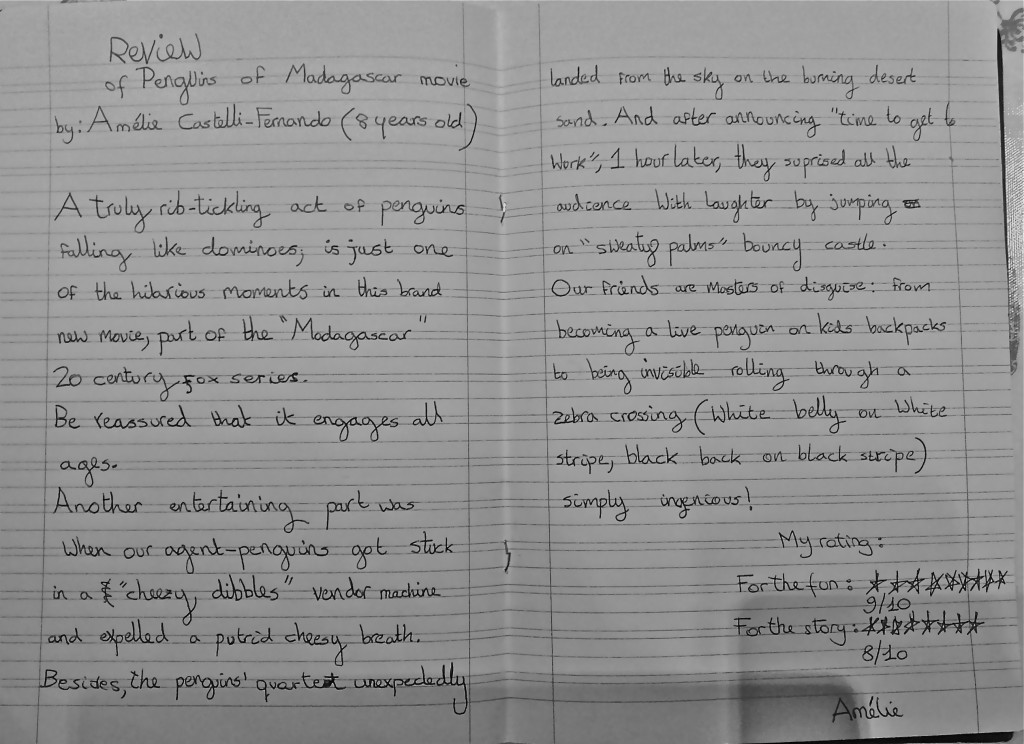 Review
of Penguins of Madagascar movie
by: Amélie Castelli-Fernando (8 years old)
A truly rib-tickling act of penguins
falling like dominoes; is just one
of the hilarious moments in this brand
new movie, part of the "Madagascar"
20 century fox series.
Be reassured that it engages all
ages.
Another entertaining part was
When our agent-penguins got stuck
in a "cheezy dibbles" vendor machine
and expelled a putrid cheesy breath.
Besides, the penguins' quartet unexpectedly
landed from the sky on the burning desert
sand. And after announcing "time to get to
work", 1 hour later, they suprised all the
audience With laughter by jumping
on "sweaty palms" bouncy castle.
Our friends are Masters of disguise: from
becoming a live penguin on kids backpacks
to being invisible rolling through a
zebra crossing (White belly on White
stripe, black back on black stripe)
simply ingenious!
My rating:
For the fun: ★★★★★★★★★
9/10
For the story: ★★★★★★★★
8/10
Amélie